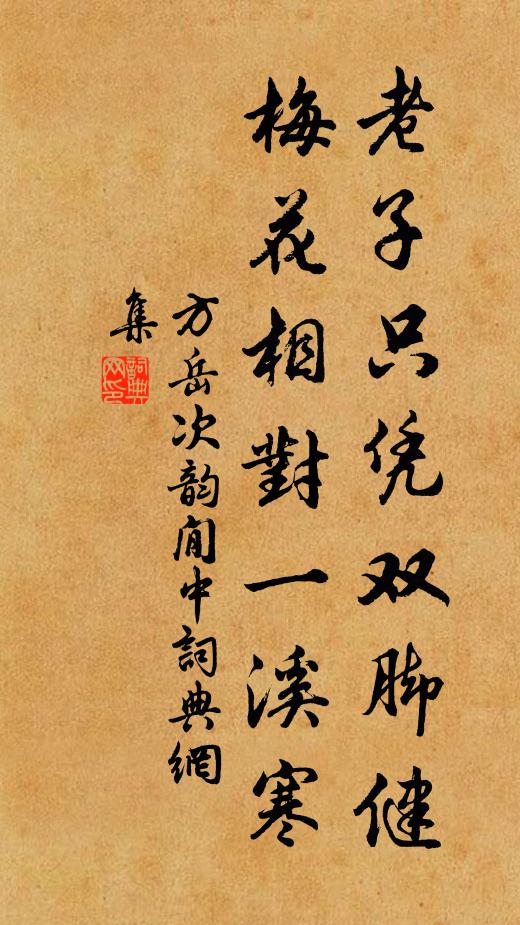 老子只凭双脚健
梅花相對一溪寒
方岳次韵閒中詞典網
集
詞典网印